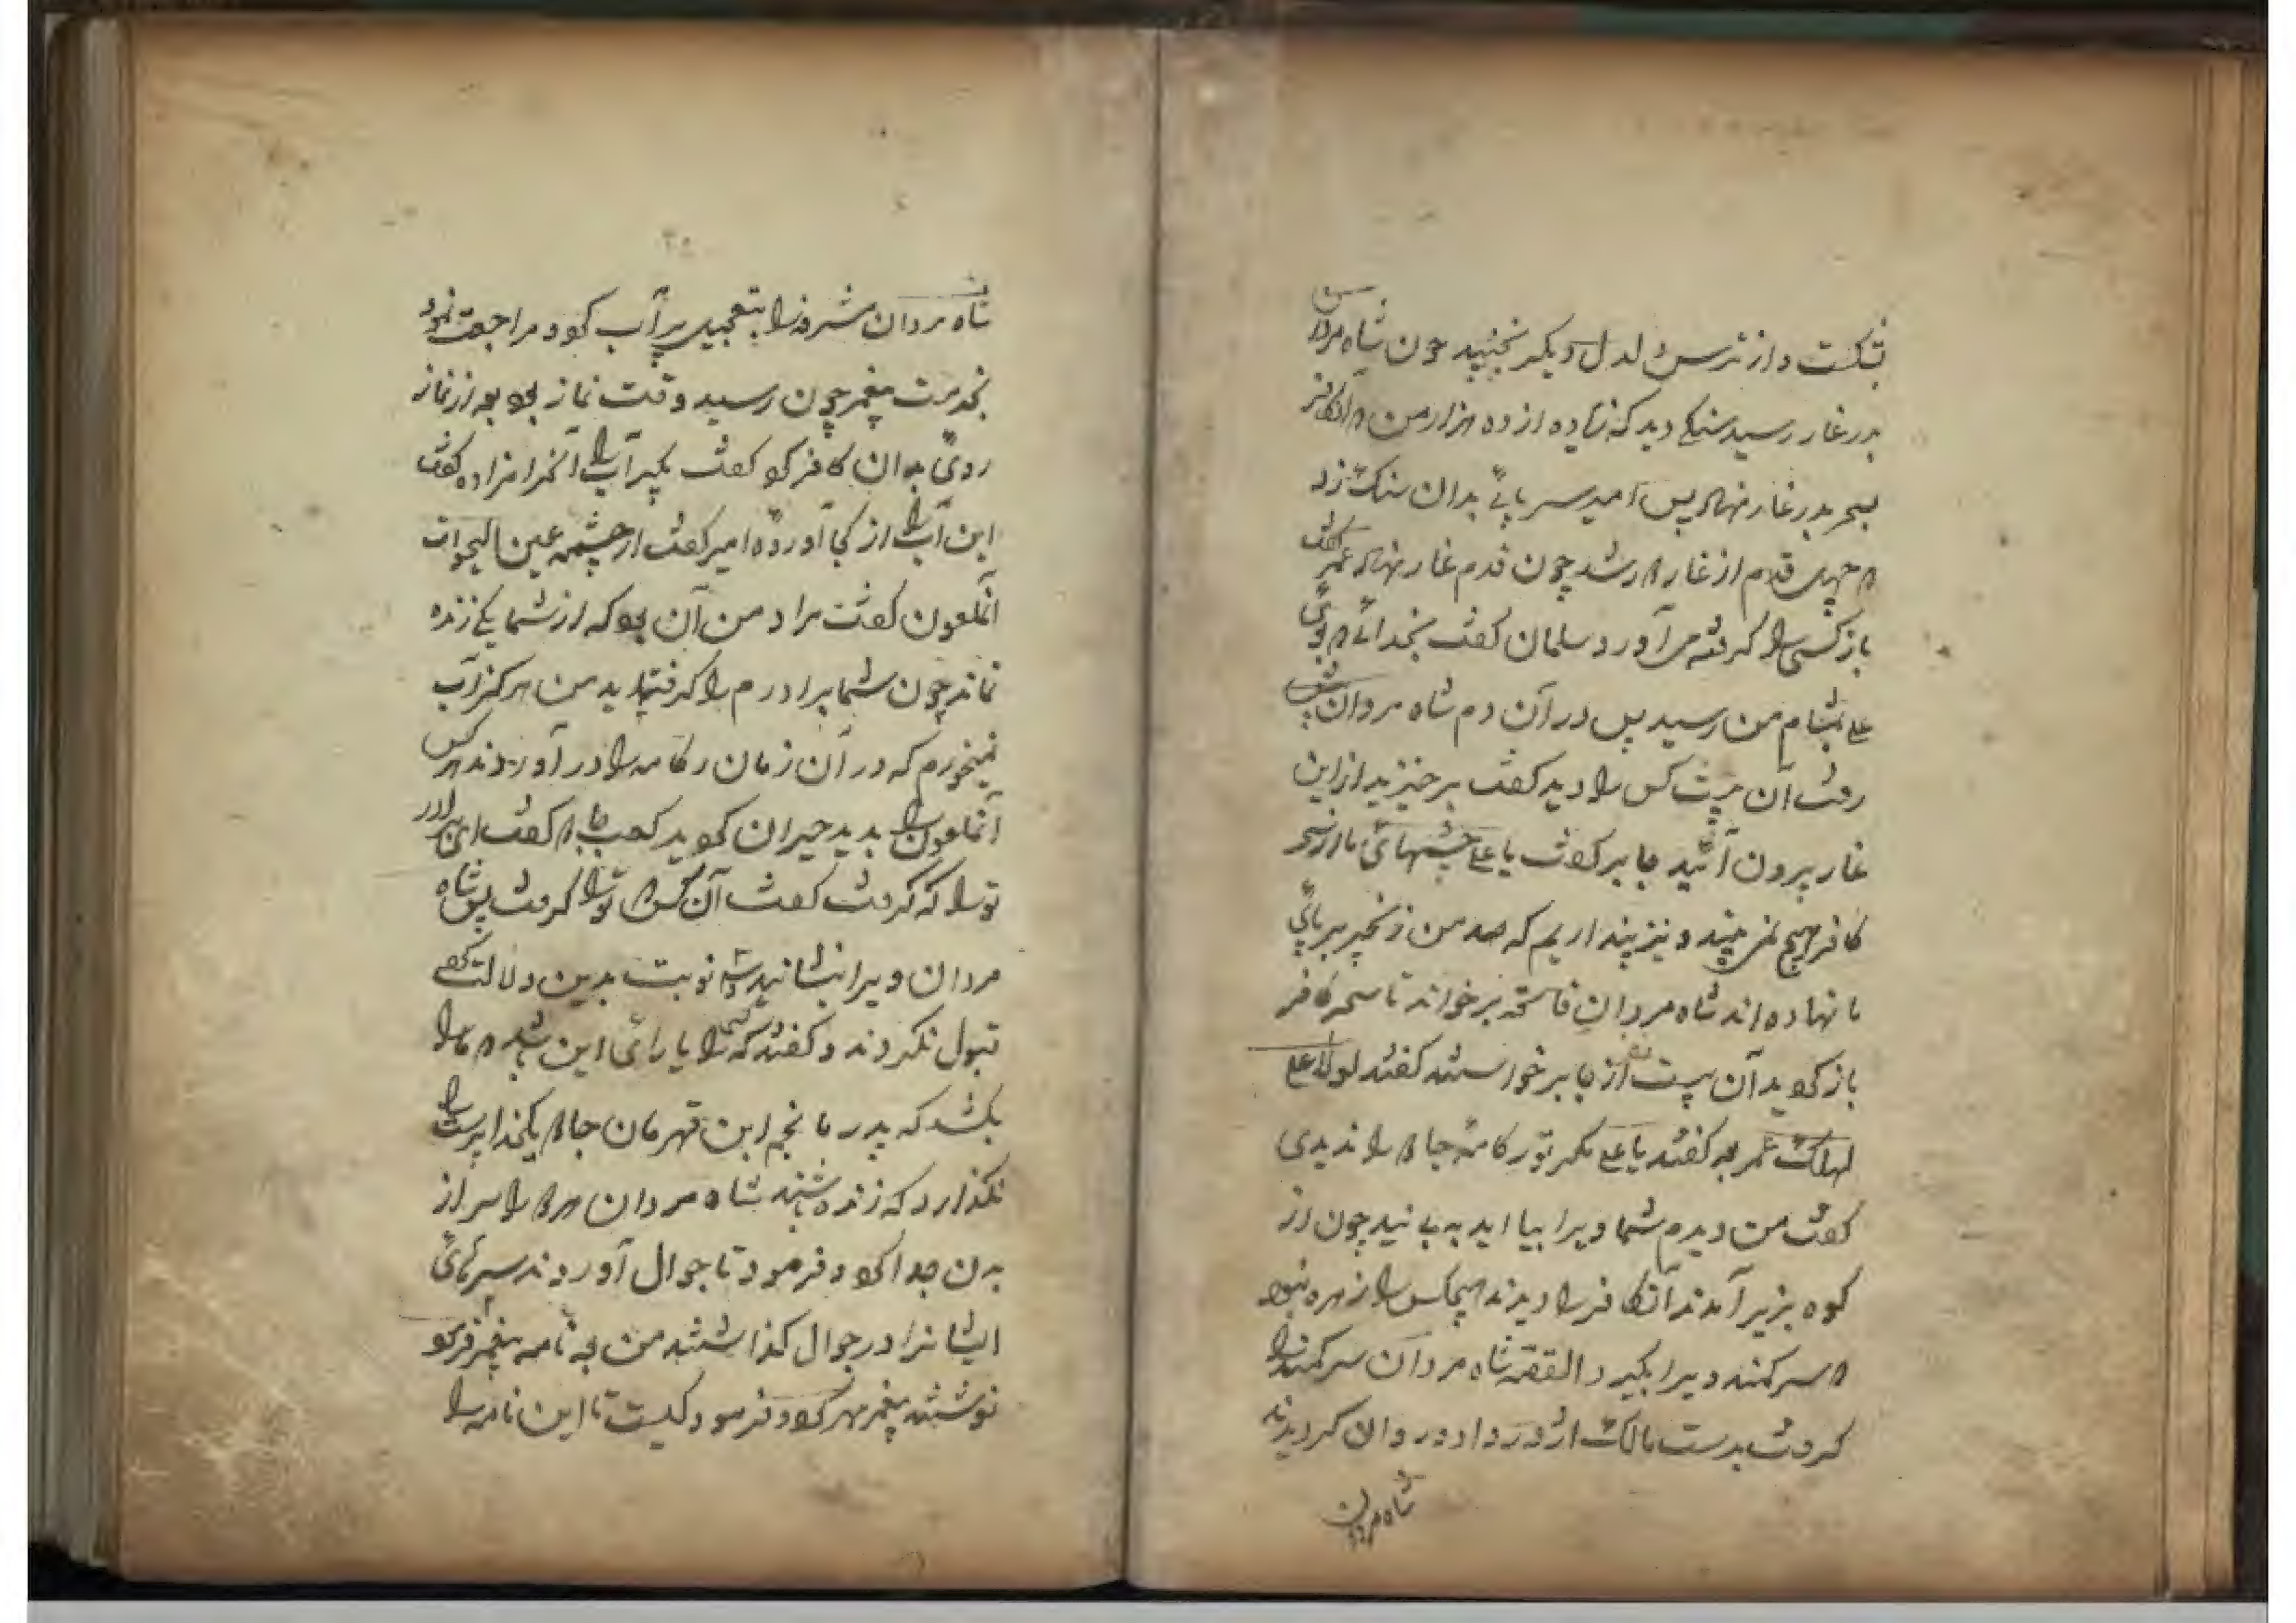 بشکست و از ترس دلدل دیگر نجنبید چون شاه مردان
بدر غار رسید سنگی دید که زیاده از ده هزار من
بسحر بدر غار نهاد پس امیر سر پائی بدان سنک زد
چهل قدم از غار شد چون قدم غار نهاد عمر گفت
باز کسی را گرفته می آورد سلمان گفت بخدائی بوی
علی بمشام من رسید پس در آن دم شاه مردان پیش
رفت آن بیست کس را دید کفت برخیزید از این
غار بیرون آئید جابر کفت یا علی چشمهائی ما از سحر
کافر هیچ نمی بیند و نیز پنداریم که صد من زنجیر بر پائی
ما نهاده اند شاه مردان فاتحه برخواند تا سحر کافر
باز کوید آن بیست نفر از جا برخواستند کفتند لولا علی
لهلک عمر کفتند یا علی مکر تو رکامه جا را ندیدی
کفت من دیدم شما ویرا بیا اید به بینید چون از
کوه بزیر آمدند آن کافر را دیدند هیچکس را زهره نبود
سر کمند ویرا بگیرد القصه شاه مردان سر کمند را
کرفت بدست مالک اژدر داد و روان کردیدند
شاه مردان
شاه مردان مشرفه را بتعجیل پر آب کود مراجعت نمود
بخدمت پیغمبر چون رسید وقت نماز بود بعد از نماز
روی بدان کافر کو کفت بگیر آب را آنحرامزاده کفت
این آب را از کجا آورده امیر کفت از چشمه عین الحیوات
آنملعون کفت مراد من آن بود که از شما یکی زنده
نماند چون شما برادرم را کرفته اید من هرکز آب
نمیخورم که در آن زمان رکامه را در آوردند هر کس
آنملعون را بدید حیران کوید کعب جا کفت ای برادر
تو را که کرفت کفت آن کس تو را کرفت پس شاه
مردان ویرا بنشانید نوبت بدین دلالت کو
قبول نکردند و کفتند که کسی را یارائی این باشد ما را
بکشد که پدر ما نجم ابن قهرمان جا یکخدا پرست را
نکذارد که زنده باشند شاه مردان را سر از
بدن جدا کود و فرمود تا جوال آوردند سرهائی
ایشانرا در جوال کذاشتند من بعد نامه پیغمبر فرمو
نوشتند پیغمبر مهر کود و فرمود کیست تا این نامه را